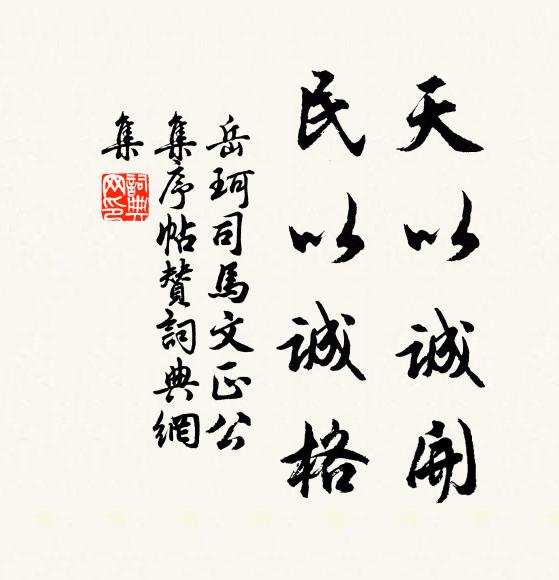 天以誠開
民以誠格
岳珂司馬文正公
集序帖贊詞典網
集
詞典網印